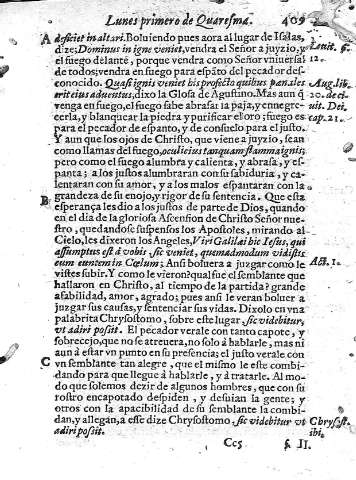 Lunes primero de Quaresma. 409
A deficiet in altari. Boluiendo pues aora al lugar de Isaias,
dize; Dominus in igne veniet, vendra el Señor a juyzio, y Leuit. 6.
el fuego delante, porque vendra como Señor vniuersal 12.
de todos; vendra en fuego para espãto del pecador des-
conocido. Quasi ignis veniet his profecto quibus pœnales Aug. lib.
erit eius aduentus; dixo la Glosa de Agustino. Mas aun q̃ 20. de Ci.
venga en fuego, el fuego sabe abrasar la paja, y ennegre- uit. Dei.
cerla, y blanquear la piedra y purificar el oro; fuego es cap. 21.
para el pecador de espanto, y de consuelo para el justo.
Y aun que los ojos de Christo, que viene a juyzio, sean
como llamas del fuego, oculi eius tanquam flamma ignis;
pero como el fuego alumbra y calienta, y abrasa, y es-
panta; a los justos alumbraran con su sabiduria, y ca-
lentaran con su amor, y a los malos espantaran con la
grandeza de su enojo, y rigor de su sentencia. Que esta
B esperança les dio a los justos de parte de Dios, quando
en el dia de la gloriosa Ascension de Christo Señor nue-
stro, quedandose suspensos los Apostoles, mirando al
Cielo, les dixeron los Angeles, Viri Galilæi hic Iesus, qui
assumptus est à vobis sic veniet, quemadmodum vidistis
eum euntem in Cœlum; Ansi boluera a juzgar como le Act. 1.
vistes subir. Y como le vieron? qual fue el semblante que
hallaron en Christo, al tiempo de la partida? grande
afabilidad, amor, agrado; pues ansi le veran boluer a
juzgar sus causas, y sentenciar sus vidas. Dixolo en vna
palabrita Chrysostomo, sobre este lugar, Sic videbitur,
vt adiri possit. El pecador verale con tanto capote, y
sobrecejo, que no se atreuera, no solo à hablarle, mas ni
aun à estar vn punto en su presencia; el justo verale con
C vn semblante tan alegre, que el mismo le este combi-
dando para que llegue à hablarle, y à tratarle. Al mo-
do que solemos dezir de algunos hombres, que con su
rostro encapotado despiden, y desuian la gente; y
otros con la apacibilidad de su semblante la combi-
dan, y allegan, a esse dize Chrysostomo, sic videbitur vt Chrysost.
adiri possit. ibi.
Ccs § II.